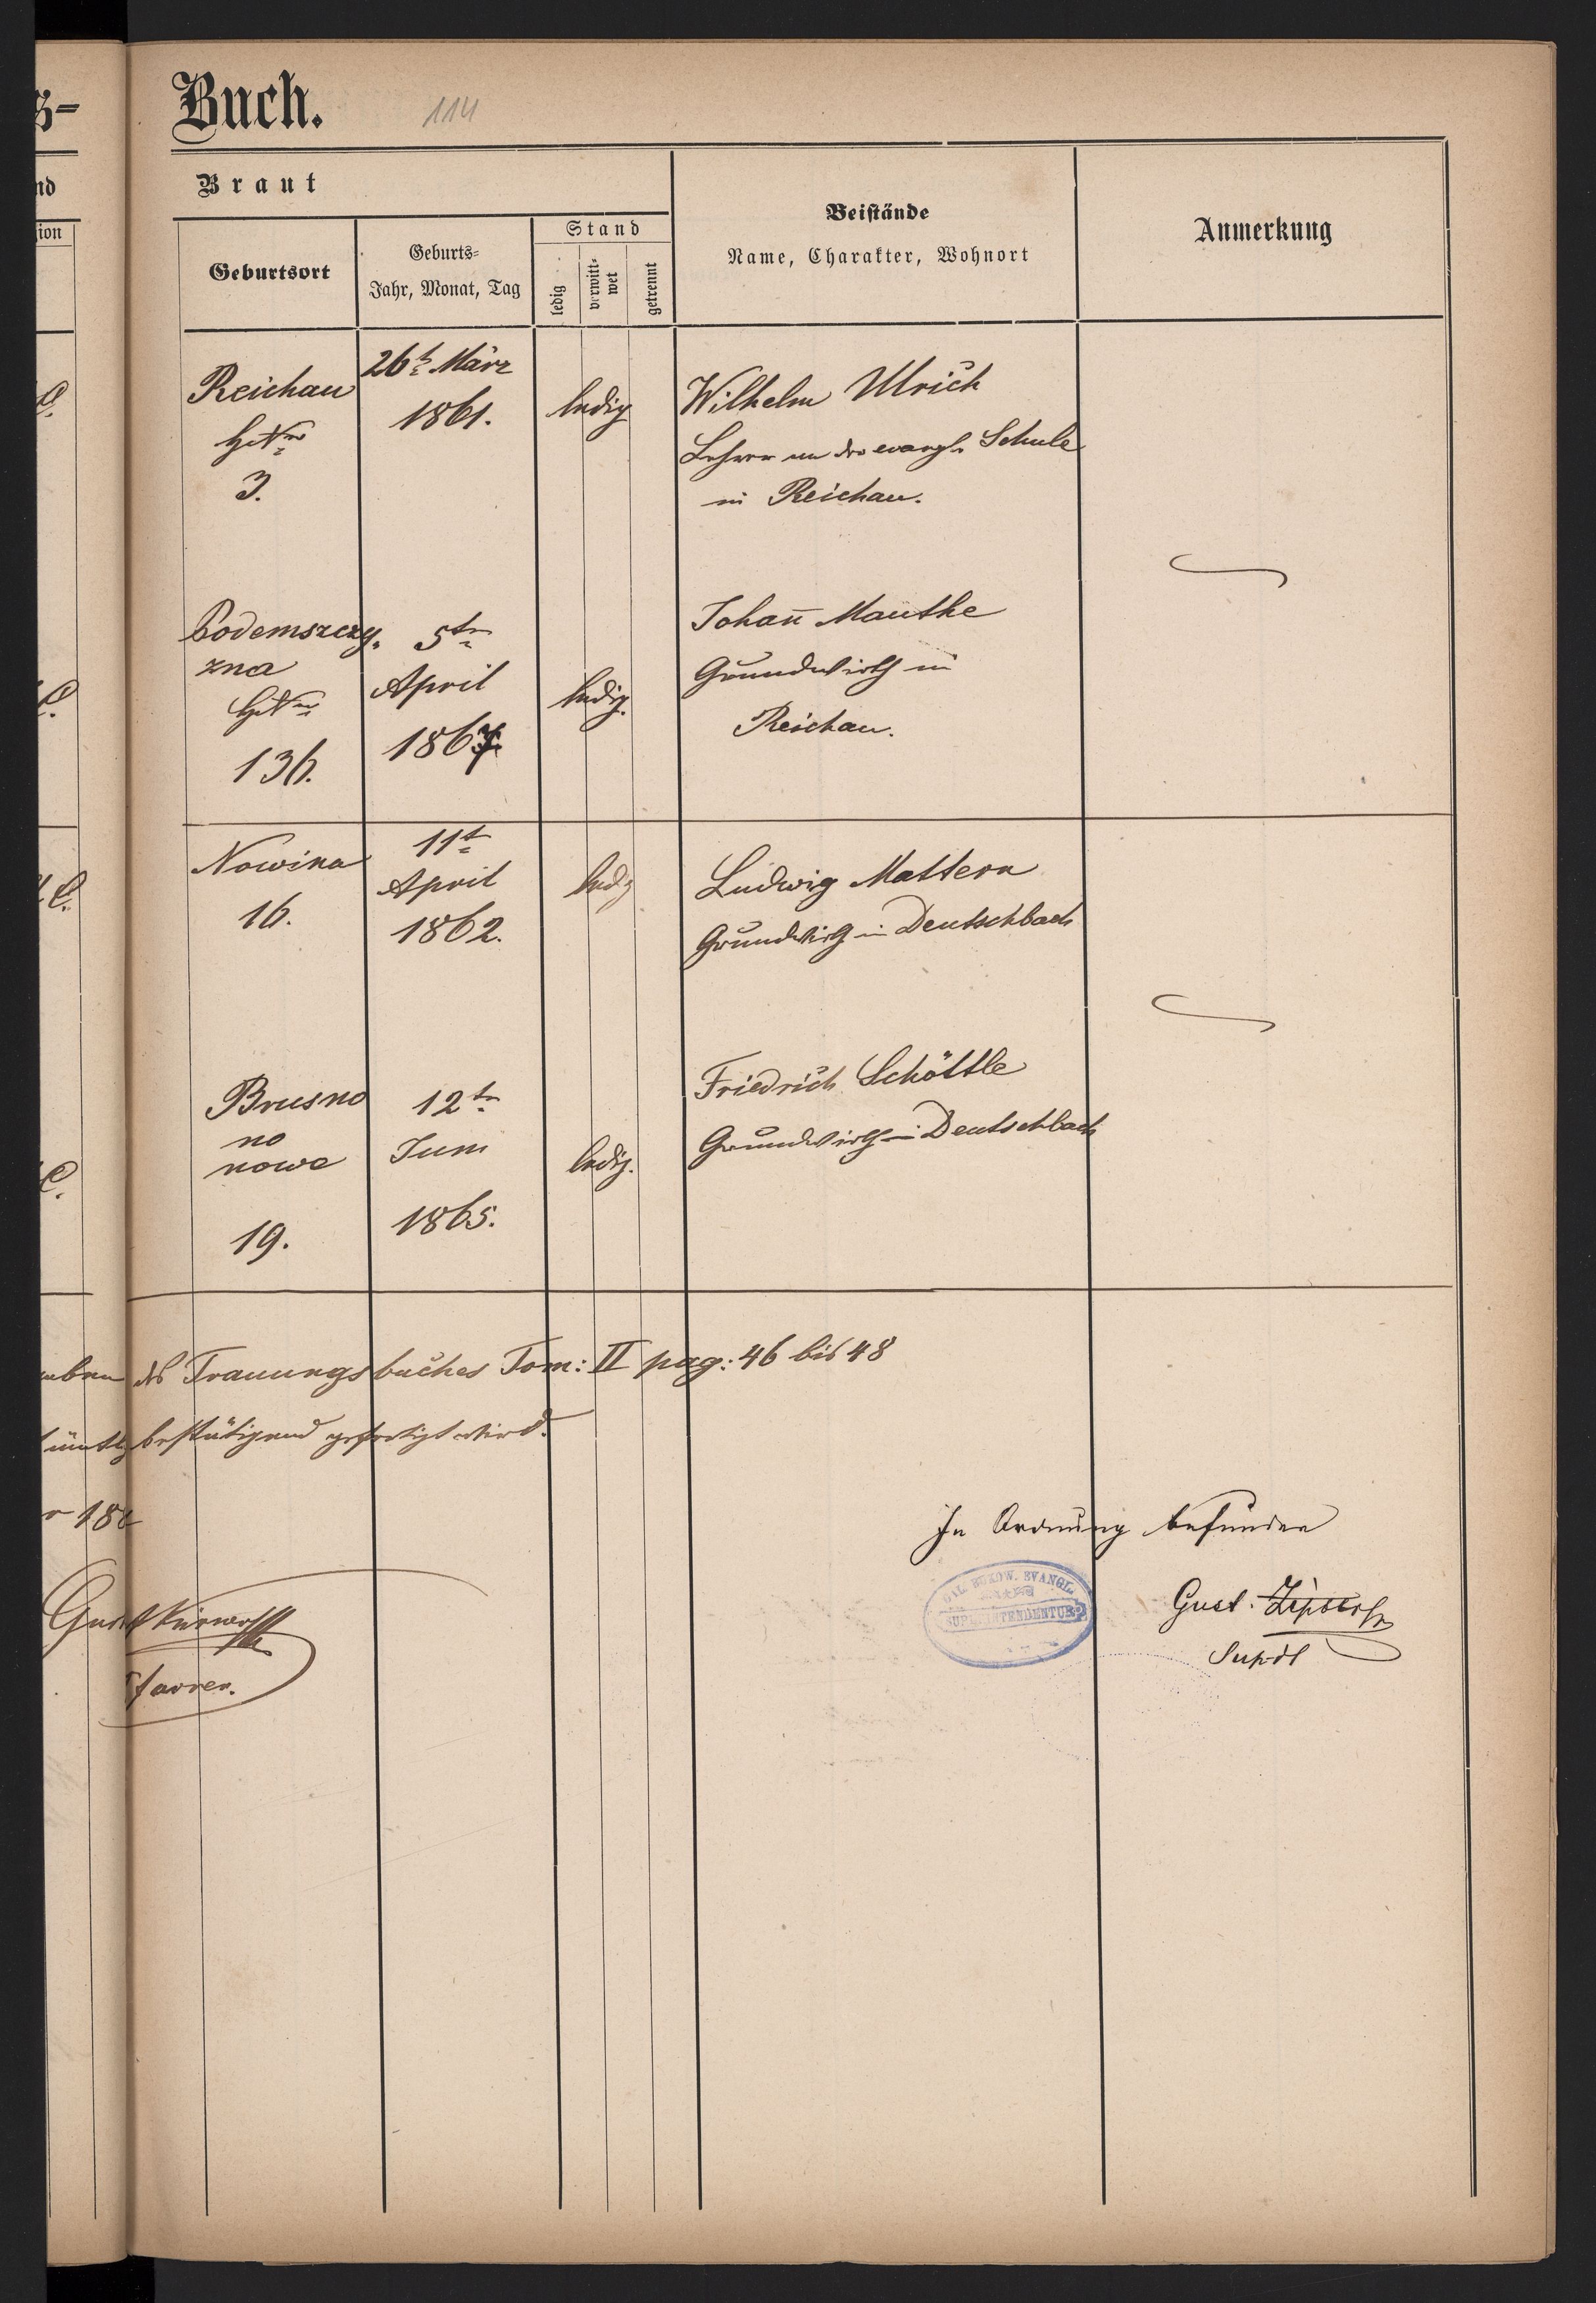 Buch.
114
Braut
Geburtsort
Geburts-
Jahr, Monat, Tag
Stand
ledig
verwitt-
wet
getrennt
Beistände
Name, Charakter, Wohnort
Anmerkung
nd
ion
Reichau
HsNro
3.
26t März
1861.
ledig
Wilhelm Ulrich
Lehrer an der evangl. Schule
in Reichau.
Podemszczy-
zna
HsNro
136.
5tn
April
1867.
ledig.
Johan̄ Mauthe
Grundwirth in
Reichau.
Nowina
16.
11t
April
1862.
ledig
Ludwig Mattern
Grundwirth in Deutschbach
Brusno
no
nowe
19.
12tn
Juni
1865.
ledig.
Friedrich Schöttle
Grundwirth in Deutschbach
des Trauungsbuches Tom: II pag: 46 bis 48
bestätigend gefertigt wird.
In Ordnung befunden
GAL. BUKOW. EVANGL.
SUPERINTENDENTUR
Gust.
Supdt
Pfarrer.